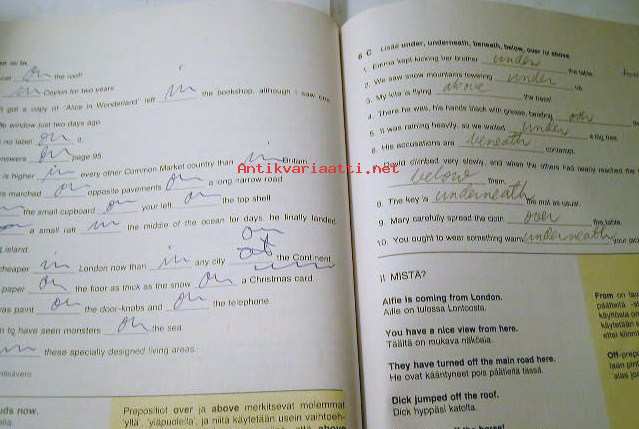 on the roof!
on Ceylon for two years
got a copy of 'Alice in Wonderland' left in the bookshop, although I saw one
window just two days ago.
no label on it.
on page 95
is higher in every other Common Market country than in Britain.
marched on opposite pavements on a long narrow road
the small cupboard on your left on the top shelf
a small raft in the middle of the ocean for days, he finally landed
on
cheaper in London now than in any city at the Continent
paper on the floor as thick as the snow on a Christmas card.
paint on the door-knobs and on the telephone
to have seen monsters on the sea
in these specially designed living areas.
now,
Prepositiot over ja above merkitsevät molemmat
'yllä', 'yläpuolella', ja niitä käytetään usein vaihtoeh-
above
6 C Lisää under, underneath, beneath, below, over tai above
1. Emma kept kicking her brother under the table.
2. We saw snow mountains towering under us.
3. My kite is flying above the trees!
4. There he was, his hands black with grease, bending over
5. It was raining heavily, so we waited under a big tree.
6. His accusations are beneath contempt.
David climbed very slowly, and when the others had nearly reached the
below them.
8. The key is underneath the mat as usual.
9. Mary carefully spread the cloth over the table.
10. You ought to wear something warm underneath your
MISTÄ?
Alfie is coming from London.
Alfie on tulossa Lontoosta.
You have a nice view from here.
Täältä on mukava näköala.
They have turned off the main road here.
He ovat kääntyneet pois päätieltä tässä.
Dick jumped off the roof.
Dick hyppäsi katolta.
From on
käytetään
Antikvariaatti.net